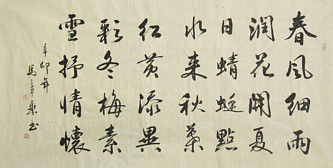 春風細雨
潤花開夏
日蜻蜓點
水來秋葉
紅黃添異
彩冬梅素
雪抒情懷
辛卯年